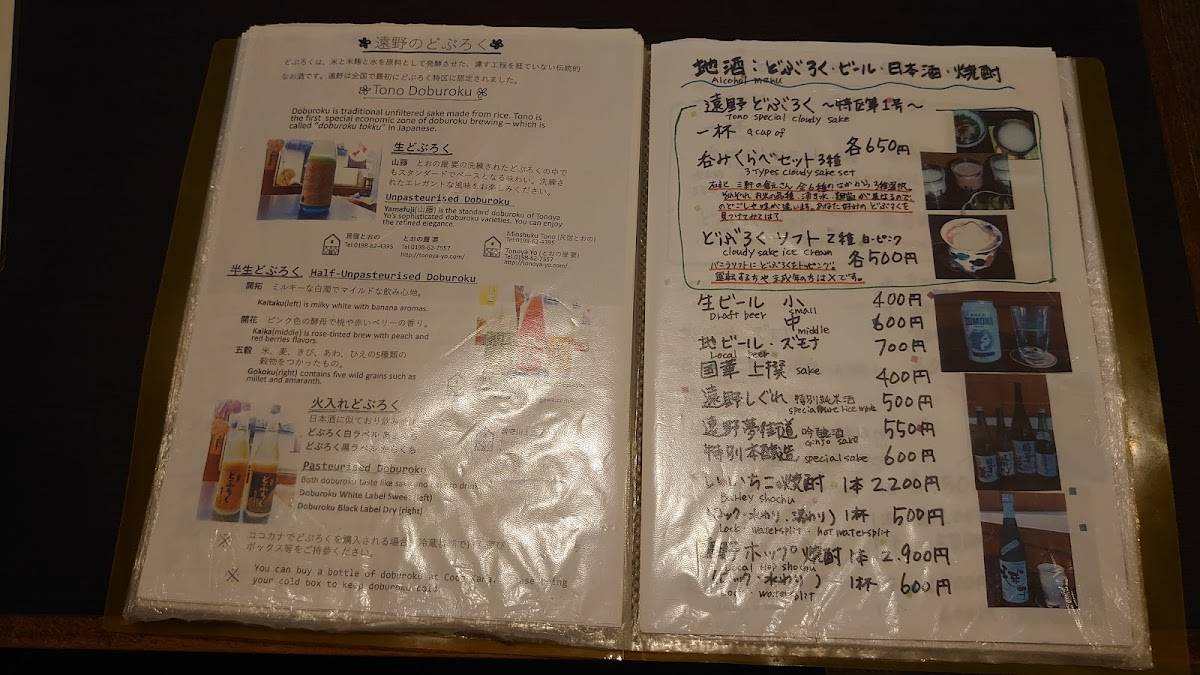 遠野のどぶろく
どぶろくは、米と米麹と水を原料として発酵させた、濾す工程を経ていない伝統的
なお酒です。遠野は全国で最初にどぶろく特区に認定されました。
Tono Doburoku
Doburoku is traditional unfiltered sake made from rice. Tono is
the first special economic zone of doburoku brewing – which is
called "doburoku tokku" in Japanese.
生どぶろく
山藤 とおの屋 要の洗練されたどぶろくの中で
もスタンダードでベースとなる味わい。洗練さ
れたエレガントな風味をお楽しみください。
Unpasteurised Doburoku
Yamafuji(山藤) is the standard doburoku of Tonoya
Yo's sophisticated doburoku varieties. You can enjoy
the refined elegance.
民宿とおの
Tel:0198-62-4395
とおの屋 要
Tel:0198-62-7557
http://tonoya-yo.com/
Minshuku Tono (民宿とおの)
Tel:0198-62-4395
Tonoya Yo (とおの屋 要)
Tel:0198-62-7557
http://tonoya-yo.com/
半生どぶろく Half-Unpasteurised Doburoku
開拓 ミルキーな白濁でマイルドな飲み心地。
Kaitaku(left) is milky white with banana aromas.
開花 ピンク色の酵母で桃や赤いベリーの香り。
Kaika(middle) is rose-tinted brew with peach and
red berries flavors.
五穀 米、麦、きび、あわ、ひえの5種類の
穀物をつかったもの。
Gokoku(right) contains five wild grains such as
millet and amaranth.
火入れどぶろく
日本酒に似ており飲み
どぶろく白ラベル あま
どぶろく黒ラベル からくち
Pasteurised Doburoku
Both doburoku taste like sake and drink
Doburoku White Label Sweet (left)
Doburoku Black Label Dry (right)
※ ココカナでどぶろくを購入される場合
ボックス等をご持参ください。
※ You can buy a bottle of doburoku at Coco bring
your cold box to keep doburoku cold.
地酒:どぶろく・ビール・日本酒・焼酎
Alcohol menu
遠野どぶろく 〜特区第1号〜
Tono special cloudy sake
一杯 a cap of
各650円
呑みくらべセット3種
3 types cloudy sake set
全6種のなかから3種選択。
それぞれ お米の品種、湧き水、麹菌が異なるので、
のどごしや味が違います。あなた好みのどぶろくを
見つけてみては?
どぶろくソフト 2種 白・ピンク
cloudy sake ice cream 各500円
バニラソフトにどぶろくをトッピング。
運転する方や未成年の方は×です。
生ビール 小 400円
Draft beer small
中 600円
middle
地ビール・ズモナ 700円
Local beer
国華 上撰 sake 400円
遠野しぐれ 特別純米酒 500円
遠野夢街道 吟醸酒 550円
Ginjo sake
特別本醸造 special sake 600円
いいちこ 焼酎 1本 2,200円
Barley shochu
(ロック・水わり・湯わり) 1杯 500円
Lock・watersplit・hot watersplit
ホップ焼酎 1本 2,900円
Local Hop shochu
(ロック・水わり) 1杯 600円
Lock・watersplit